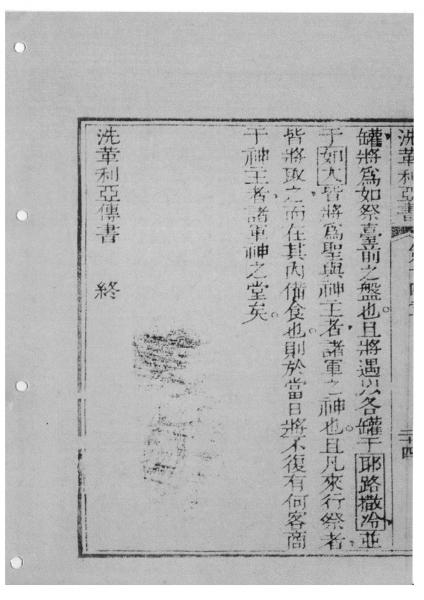 洗革利亞書
罐將爲如祭臺前之盤也。且將遇以各罐于耶路撒冷並
于如大皆將爲聖與神主者諸軍之神也。且凡來行祭者、
皆將取之而在其內備食也。則於當日將不復有何客商
于神主者諸軍神之堂矣。
洗革利亞傳書 終